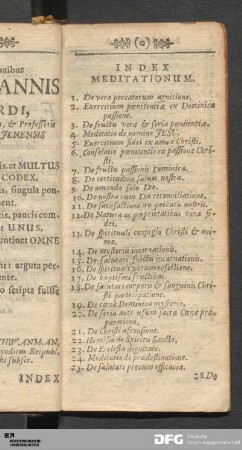 onibus
ANNIS
RDI,
& Professoris
JENENSIS
is, at MULTUS
CODEX.
is, singula pon-
ent.
cis, paucis com-
e UNUS,
ontinet OMNE
ne: arguta pee-
nte.
o scripta fuisse
INDEX
(o)
INDEX
MEDITATIONUM.
1. De vera peccatorum agnitione.
2. Exercitium pœnitentiæ ex Dominica
passione.
3. De fructu vera & seria pœnitentiæ.
4. Meditatio de nomine JESU.
5. Exercitium fidei ex amore Christi.
6. Consolatio pœnitentis ex passione Chri-
sti.
7. De fructu passionis Dominicæ.
8. De certitudine salutis nostræ.
9. De amando solo Deo.
10. De nostra cum Deo reconciliatione.
11. De satisfactione pro peccatis nostris.
12. De Natura ac proprietatibus vera fi-
dei.
13. De spirituali conjugio Christi & ani-
mæ.
14. De mysterio incarnationis.
15. De salutari fructu incarnationis.
16. De spirituali piorum refectione.
17. De baptismi fructibus.
18. De salutari corporis & sanguinis Chri-
sti participatione.
19. De cœnæ Dominicæ mysterio.
20. De seria ante usum sacræ Cœnæ præ-
paratione.
21. De Christi ascensione.
22. Homilia de Spiritu Sancto.
23. De Ecclesiæ dignitate.
24. Meditatio de prædestinatione.
25. De salutari precum efficacia.
26. De
DFG
Deutsche
Forschungsgemeinschaft